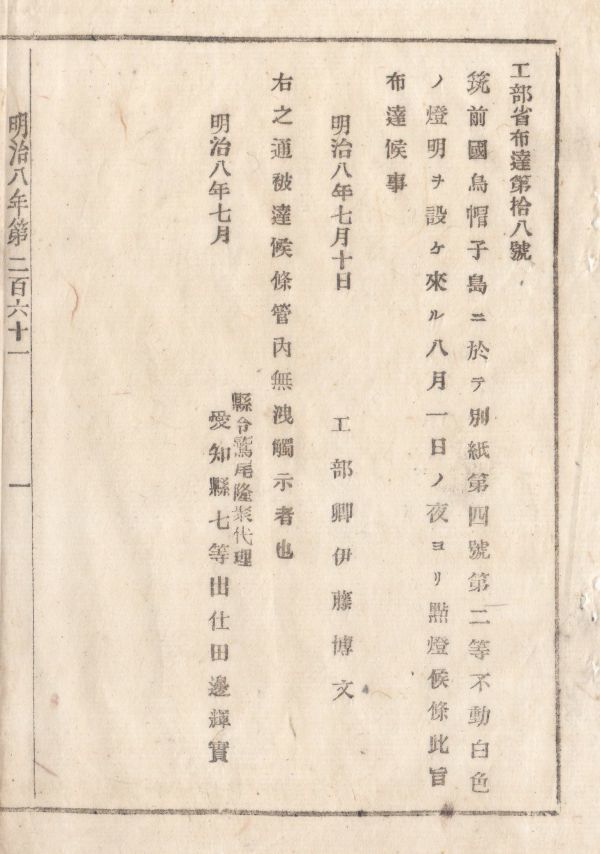 工部省布達第拾八號
筑前國烏帽子島ニ於テ別紙第四號第二等不動白色
ノ燈明ヲ設ケ來ル八月一日ノ夜ヨリ點燈候條此旨
布達候事
明治八年七月十日　工部卿伊藤博文
右之通被達候條管內無洩觸示者也
縣令鷲尾隆聚代理
明治八年七月　愛知縣七等出仕田邊輝實
明治八年第二百六十一　一